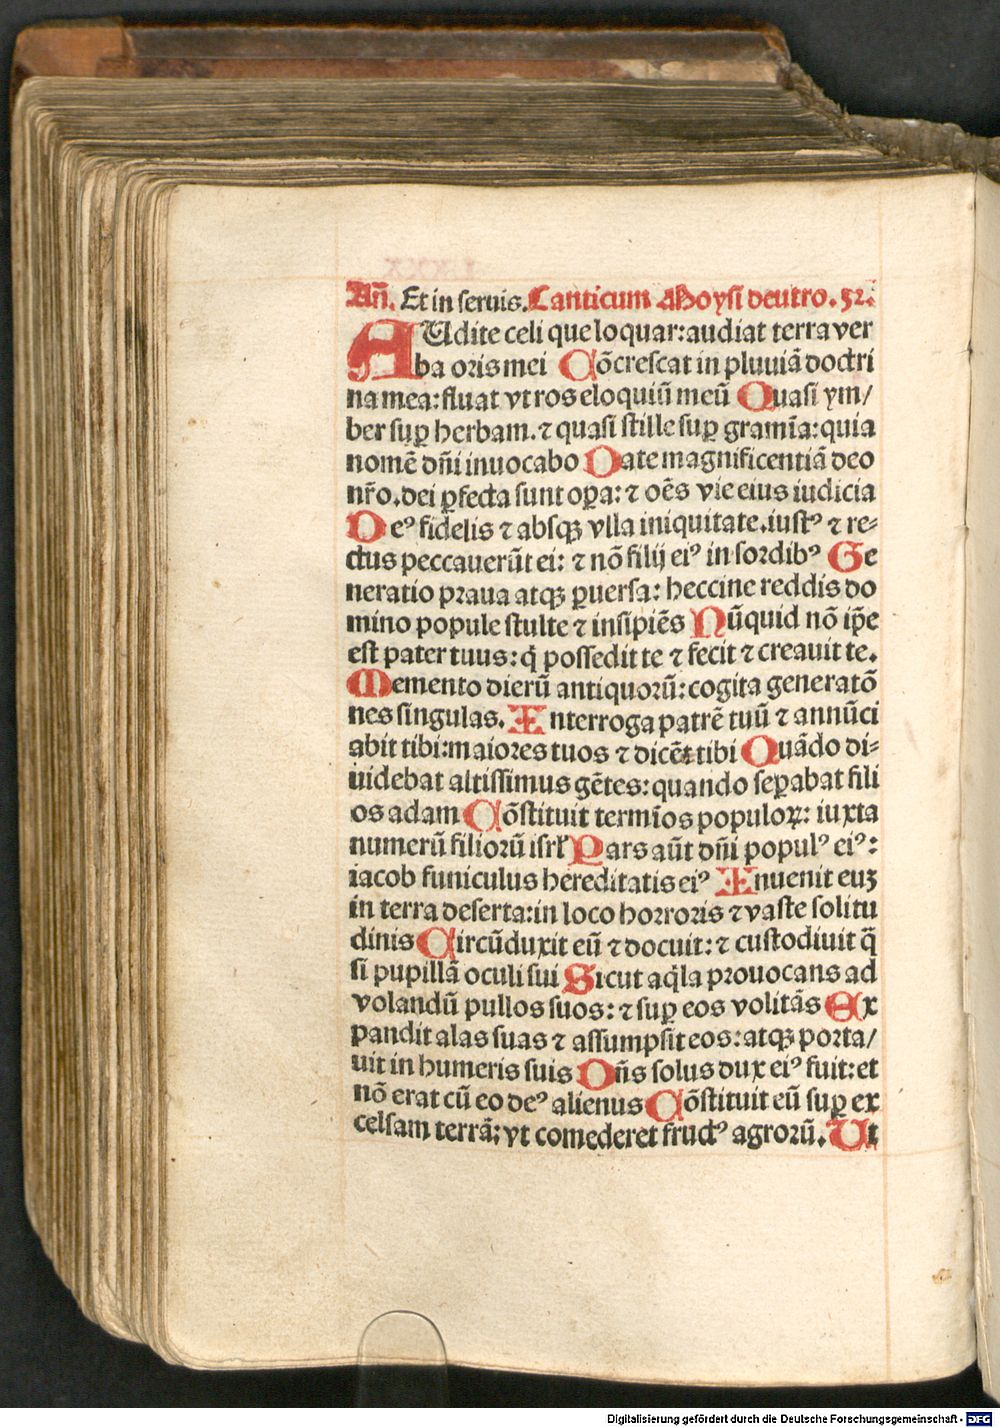 Añ. Et in seruis. Canticum Moysi deutro. 32.
AUdite celi que loquar: audiat terra ver
ba oris mei Cõcrescat in pluuiã doctri
na mea: fluat vt ros eloquiũ meũ Quasi ym/
ber suꝑ herbam. ⁊ quasi stille suꝑ gramĩa: quia
nomẽ dñi inuocabo Date magnificentiã deo
nr̃o. dei ꝑfecta sunt oꝑa: ⁊ oẽs vie eius iudicia
Deꝰ fidelis ⁊ absqꝫ vlla iniquitate. iustꝰ ⁊ re-
ctus peccauerũt ei: ⁊ nõ filij eiꝰ in sordibꝰ Ge
neratio praua atqꝫ ꝑuersa: heccine reddis do
mino popule stulte ⁊ insipiẽs Nũquid nõ ip̃e
est pater tuus: q̇ possedit te ⁊ fecit ⁊ creauit te.
Memento dierũ antiquorũ: cogita generatõ
nes singulas. Interroga patrẽ tuũ ⁊ annũci
abit tibi: maiores tuos ⁊ dicẽt tibi Quãdo di-
uidebat altissimus gẽtes: quando seꝑabat fili
os adam Cõstituit termĩos populoꝝ: iuxta
numerũ filiorũ isrl̃ Pars aũt dñi populꝰ eiꝰ:
iacob funiculus hereditatis eiꝰ Inuenit euꝫ
in terra deserta: in loco horroris ⁊ vaste solitu
dinis Circũduxit eũ ⁊ docuit: ⁊ custodiuit q̃
si pupillã oculi sui Sicut aq̇la prouocans ad
volandũ pullos suos: ⁊ suꝑ eos volitãs Ex
pandit alas suas ⁊ assumpsit eos: atqꝫ porta/
uit in humeris suis Dñs solus dux eiꝰ fuit: et
nõ erat cũ eo deꝰ alienus Cõstituit eũ suꝑ ex
celsam terrã: vt comederet fructꝰ agrorũ. Ut
Digitalisierung gefördert durch die Deutsche Forschungsgemeinschaft - DFG